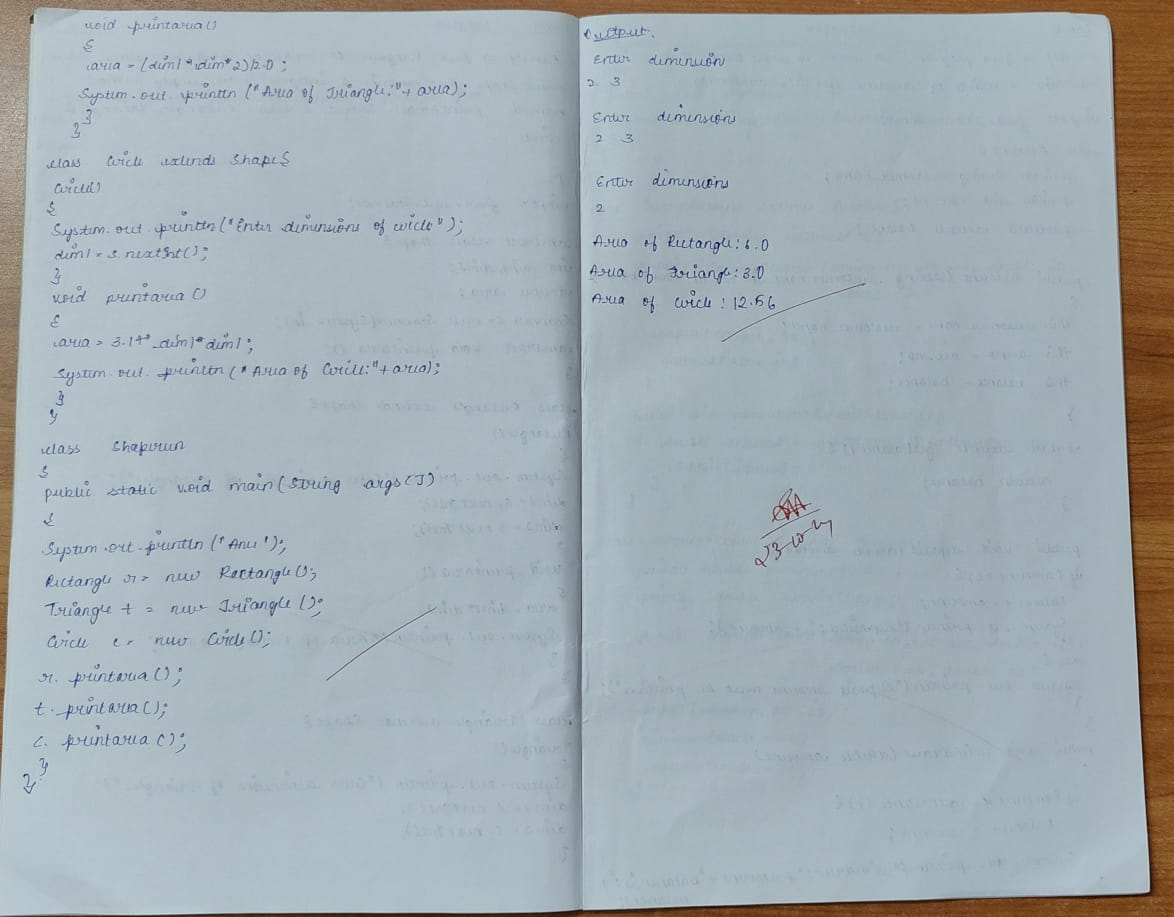 void printarea()
{
area = (dim1 * dim * 2)/2.0 ;
System.out.println ("Area of Triangle:"+ area);
}
}
class Circle extends Shape{
Circle()
{
System.out.println("Enter dimensions of circle");
dim1 = s.nextInt();
}
void printarea ()
{
area = 3.14* dim1* dim1;
System.out.println ("Area of Circle:"+ area);
}
}
class Shaperun
{
public static void main(String args[])
{
System.out.println ("Anu");
Rectangle r= new Rectangle();
Triangle t = new Triangle ();
Circle c= new Circle();
r. printarea();
t. printarea();
c. printarea ();
}
}
Output.
Enter dimension
2 3
Enter dimensions
2 3
Enter dimensions
2
Area of Rectangle: 6.0
Area of Triangle: 3.0
Area of circle : 12.56